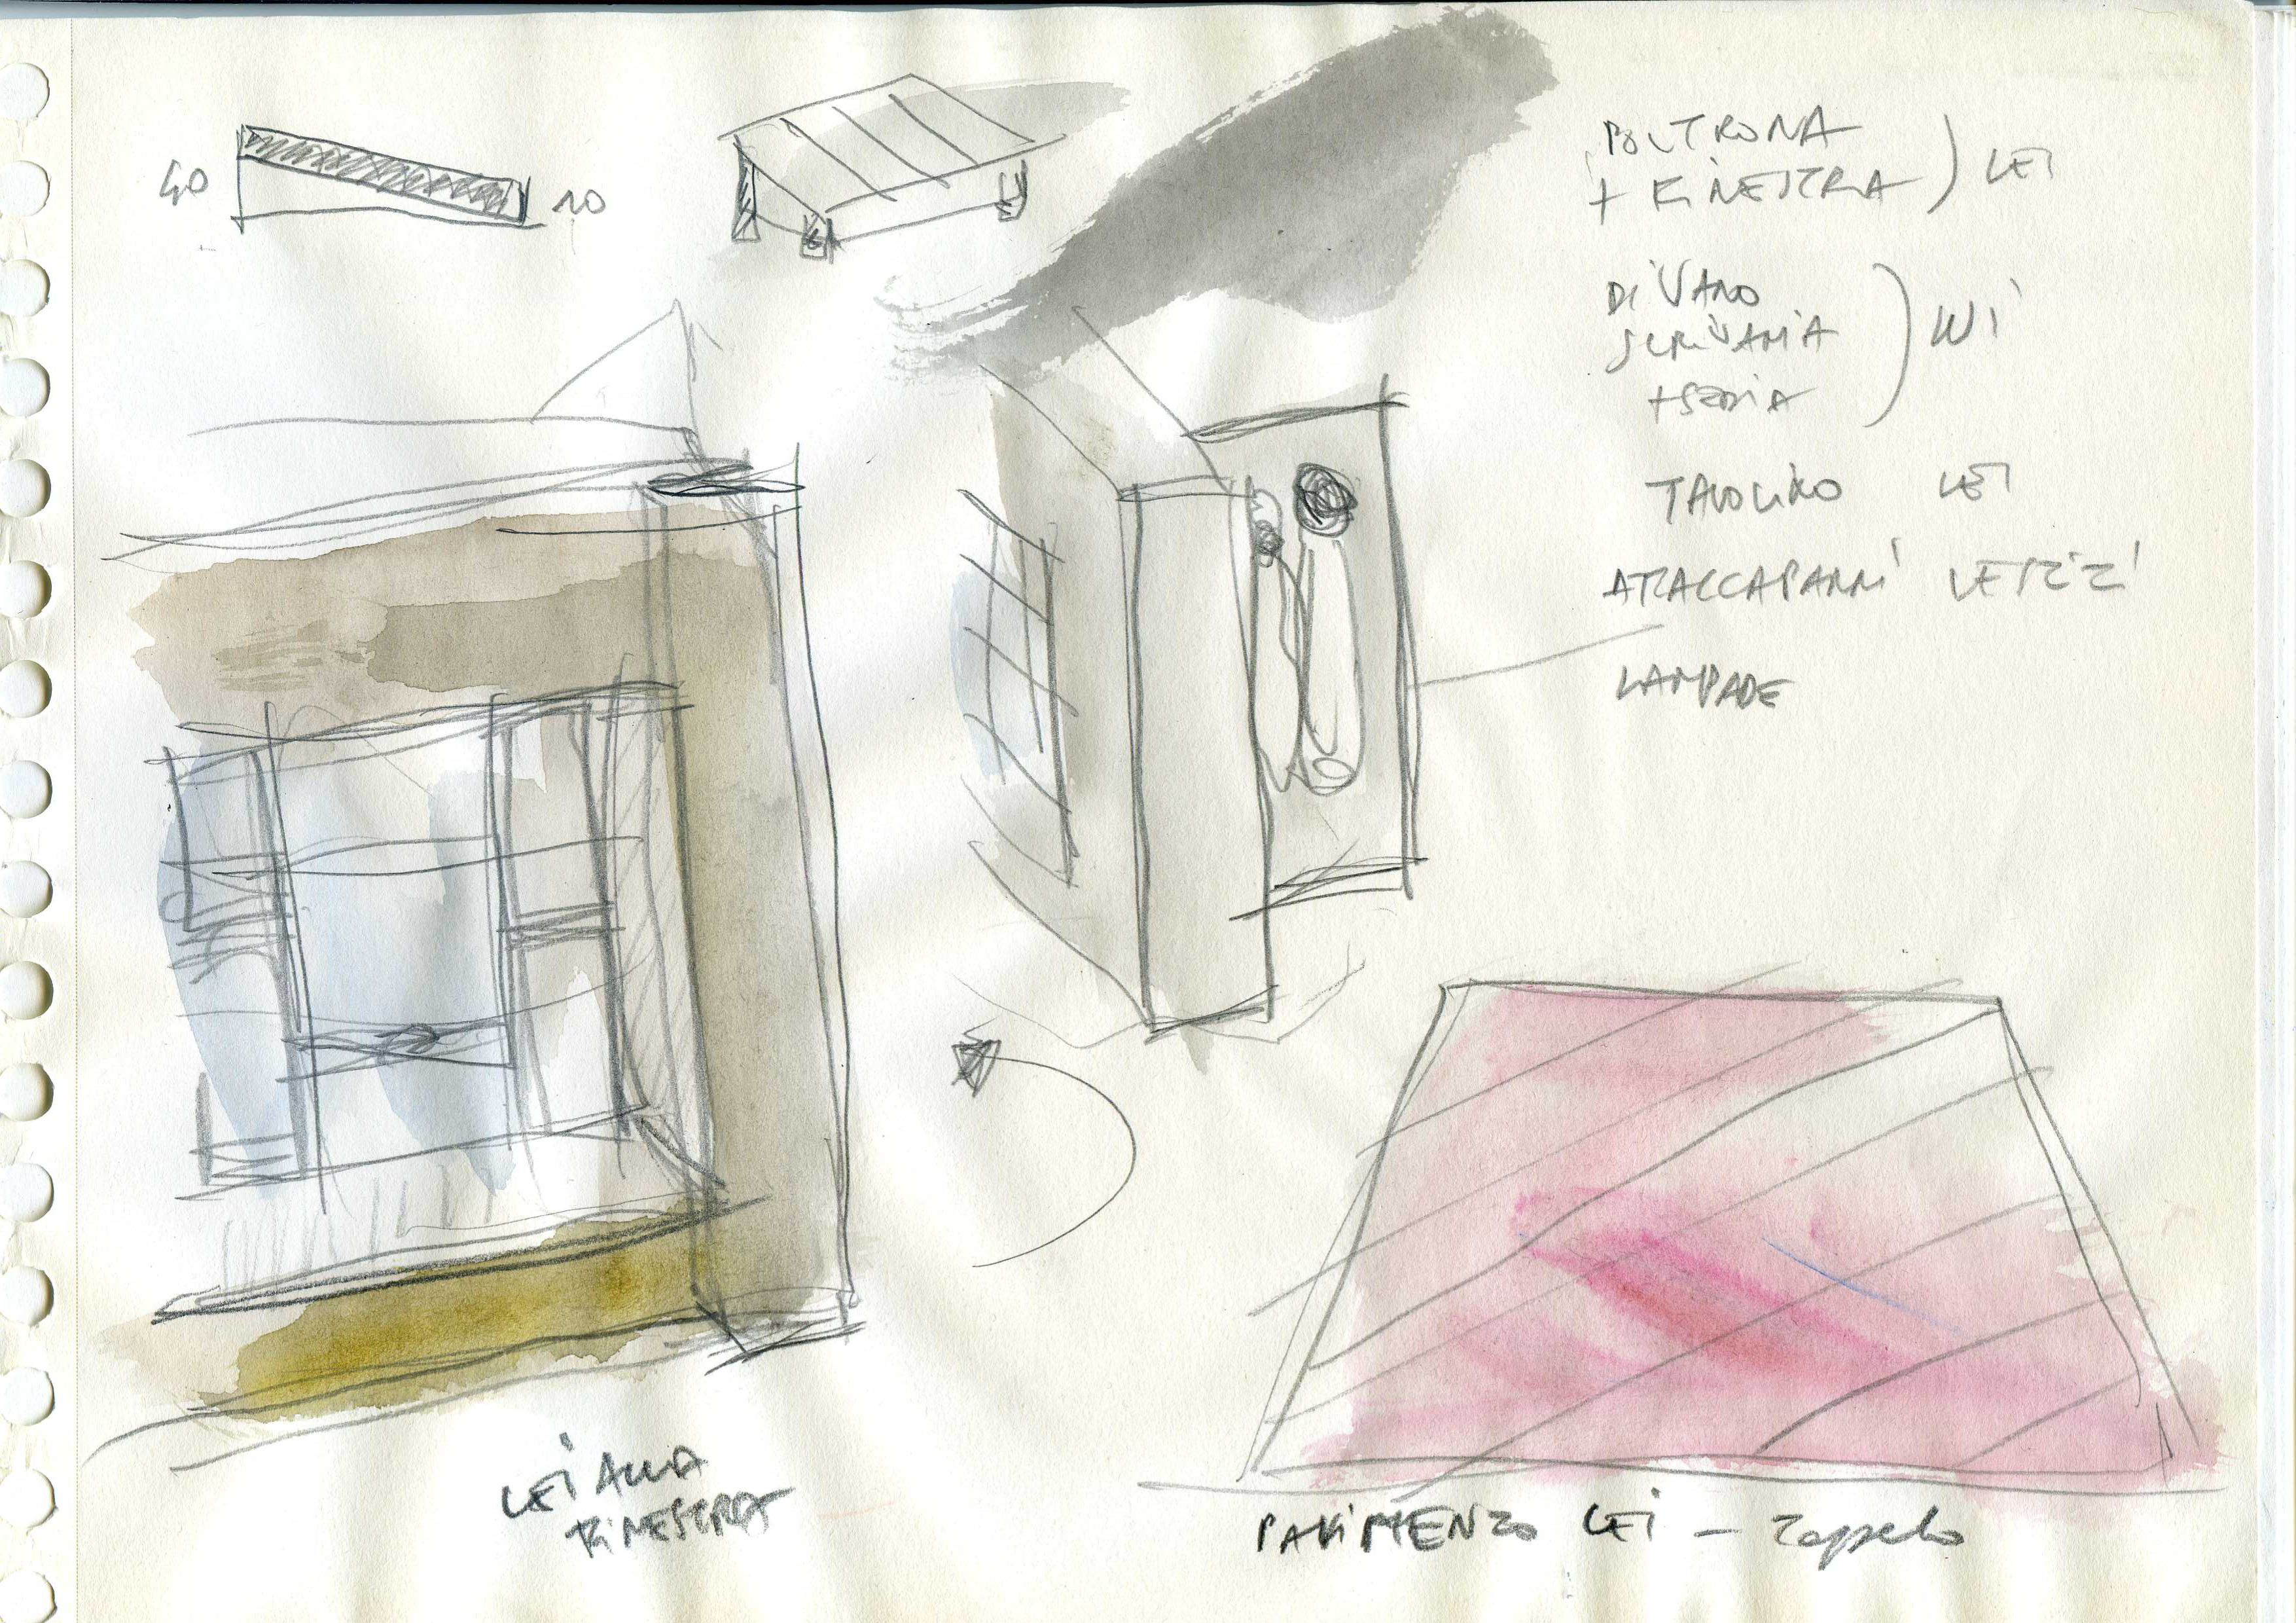 40
10
POLTRONA
+ FINESTRA ) LEI
DIVANO
SCRIVANIA ) LUI
+ SEDIA
TAVOLINO LEI
ATTACCAPANNI
LAMPADE
LEI ALLA
FINESTRA
PAVIMENTO LEI –